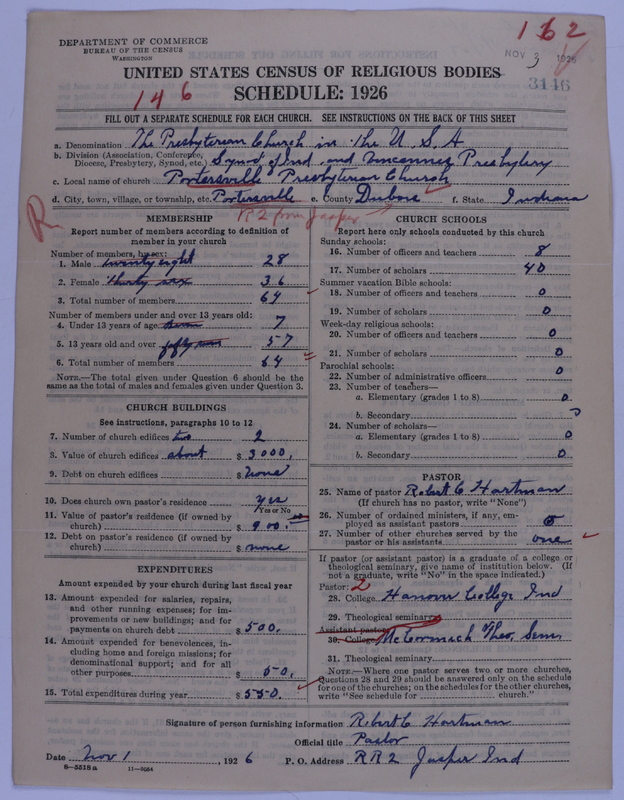 162
DEPARTMENT OF COMMERCE
BUREAU OF THE CENSUS
WASHINGTON
NOV 3 1926
3146
UNITED STATES CENSUS OF RELIGIOUS BODIES
SCHEDULE: 1926
146
FILL OUT A SEPARATE SCHEDULE FOR EACH CHURCH. SEE INSTRUCTIONS ON THE BACK OF THIS SHEET
a. Denomination The Presbyterian Church in the U. S. A
b. Division (Association, Conference, Diocese, Presbytery, Synod, etc.) Synod of Ind. and Vincennes Presbytery
c. Local name of church Portersville Presbyterian Church
d. City, town, village, or township, etc. Portersville e. County Dubois f. State Indiana
R
RR 2 from Jasper
MEMBERSHIP
Report number of members according to definition of
member in your church
Number of members, by sex:
1. Male twenty eight 28
2. Female thirty six 36
3. Total number of members 64
Number of members under and over 13 years old:
4. Under 13 years of age seven 7
5. 13 years old and over 57
6. Total number of members 64
NOTE.—The total given under Question 6 should be the
same as the total of males and females given under Question 3.
CHURCH BUILDINGS
See instructions, paragraphs 10 to 12
7. Number of church edifices two 2
8. Value of church edifices about $ 3000.
9. Debt on church edifices $ none
10. Does church own pastor's residence yes
Yes or No
11. Value of pastor's residence (if owned by
church) $ 900.
12. Debt on pastor's residence (if owned by
church) $ none
EXPENDITURES
Amount expended by your church during last fiscal year
13. Amount expended for salaries, repairs,
and other running expenses; for im-
provements or new buildings; and for
payments on church debt $ 500.
14. Amount expended for benevolences, in-
cluding home and foreign missions; for
denominational support; and for all
other purposes $ 50.
15. Total expenditures during year $ 550.
CHURCH SCHOOLS
Report here only schools conducted by this church
Sunday schools:
16. Number of officers and teachers 8
17. Number of scholars 40
Summer vacation Bible schools:
18. Number of officers and teachers 0
19. Number of scholars 0
Week-day religious schools:
20. Number of officers and teachers 0
21. Number of scholars 0
Parochial schools:
22. Number of administrative officers 0
23. Number of teachers—
a. Elementary (grades 1 to 8) 0
b. Secondary 0
24. Number of scholars—
a. Elementary (grades 1 to 8) 0
b. Secondary 0
PASTOR
25. Name of pastor Robert C Hartman
(If church has no pastor, write "None")
26. Number of ordained ministers, if any, em-
ployed as assistant pastors 0
27. Number of other churches served by the
pastor or his assistants one
If pastor (or assistant pastor) is a graduate of a college or
theological seminary, give name of institution below. (If
not a graduate, write "No" in the space indicated.)
Pastor: 2
28. College Hanover College Ind
29. Theological seminary
Assistant pastor:
30. College McCormick Theo. Sem.
31. Theological seminary
NOTE.—Where one pastor serves two or more churches,
Questions 28 and 29 should be answered only on the schedule
for one of the churches; on the schedules for the other churches,
write "See schedule for church."
Signature of person furnishing information Robert C Hartman
Official title Pastor
Date Nov 1, 1926 P. O. Address RR2 Jasper Ind
8—5518 a 11—9084